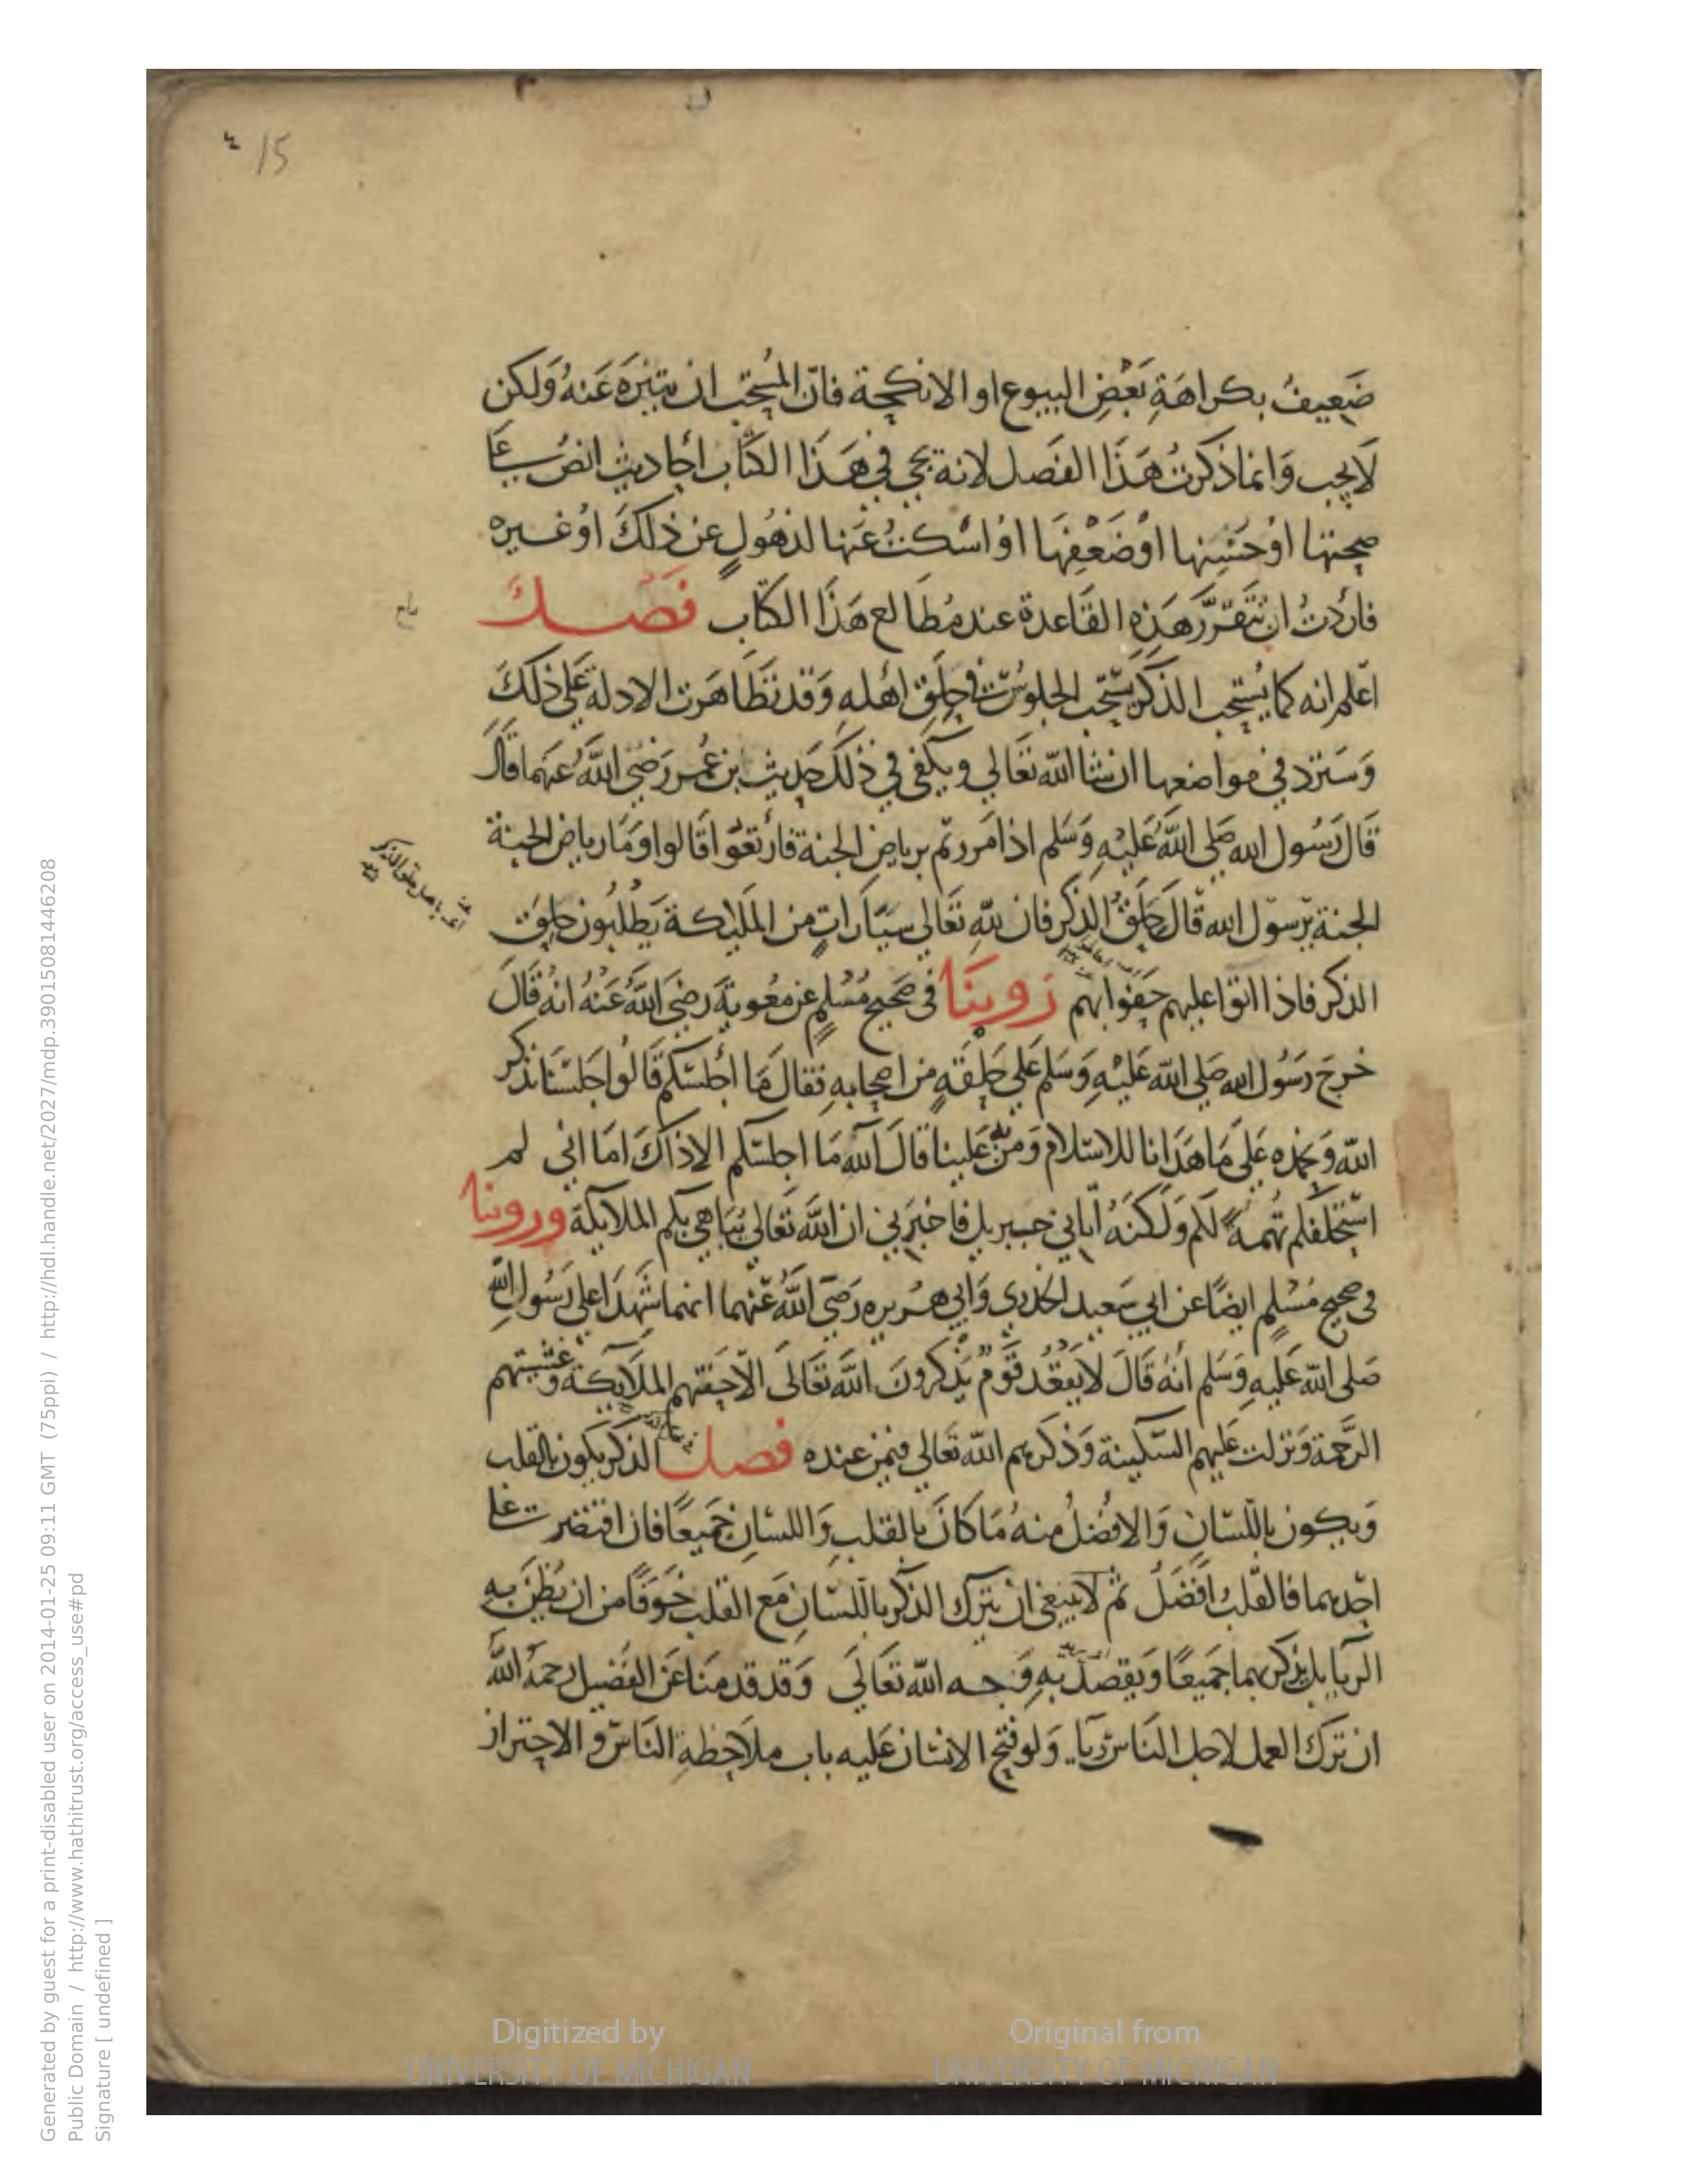 15 ٤
ضَعيفُ بكراهَةِ بَعْضِ البيوع او الانكحة فانّ المُستحَب ان يتنزه عَنهُ وَلكن
لَا يجب وَانما ذكرتُ هَذَا الفَصل لانه يجي في هَذَا الكتاب احَاديث انصُ عَلي
صحتها اوْ حَسَنها اوْ ضَعْفِهَا اوْ اسْكتُ عَنها لذهُولٍ عَن ذلكَ اوْ غيره
فاردتُ ان تتقرَّر هَذِهِ القَاعدة عند مُطَالع هَذَا الكتاب فصل
اعلم انه كما يُستحب الذكر يستحب الجلوس في حِلَقِ اهْلهِ وَقد تظَاهَرت الادلة عَلي ذلكَ
وَسَترد في مواضعها ان شا الله تعَالي ويكفي في ذلكَ حَديث بن عُمر رَضي اللهُ عَنهما قَالَ
قَال رَسُول الله صَلي اللهُ عَليْهِ وَسَلم اذا مَررتم برياض الجنة فارتعُوا قَالوا وَمَا رياض الجنة
الجنة يرسول الله قَالَ حِلَقُ الذكر فان للهِ تعَالي سَيّارَاتٍ من المَليكة يَطلبُون حلَق
الذكر فاذا اتوا عليهم حَفوا بهم رَوينَا في صَحيح مُسْلمٍ عن مَعٰويةَ رضيَ اللهُ عَنْهُ انهُ قَالَ
خرجَ رَسُول الله صَلي الله عَليْهِ وَسَلم عَلي حَلقَةٍ من اصحابهِ فقالَ مَا أجلسَكم قَالُوا جَلسْنَا نذكر
الله وَنحمَدُه عَلَي مَا هَدَانا للاسْلام وَمَنَّ به عَلينا قَالَ آلله مَا اجلسَكم الا ذاكَ امَا اني لم
استحلفكم تُهمةً لكم وَلكنَّهُ اتاني جبريل فاخبَرَني ان اللهَ تعَالي يُبَاهي بكم الملايكة وروينا
في صحيح مُسْلمٍ ايضًا عن ابي سَعيد الخدري وَابي هُريره رَضَي اللهُ عَنْهما انهما شهدَا عَلي رَسُول اللهِ
صَلي الله عَليهِ وَسَلم أنهُ قَالَ لا يَقعُد قَوْمٌ يَذكرُونَ اللهَ تعَالَى الّا حَفتهم المَلايكة وَغشيتهم
الرَّحمة وَنزلت عَليهم السَّكينة وَذكرهم الله تعَالي فيمَن عنده فصل الذكر يكون بالقلب
وَيكون باللّسَان وَالافضَلُ منهُ مَا كانَ بالقلبِ وَاللسَان جَميعًا فان اقتصَر عَلي
احَدهما فالقَلبُ افضَلُ ثم لَا ينبَغي ان يَترك الذكر باللّسَان مَع القلب خَوفًا من ان يُظنَ بهِ
الريا بل يذكر بهما جَميعًا وَيقصدُ بهِ وَجه الله تعَالَي وَقد قدمنَا عَن الفضَيل رحمهُ اللهُ
ان ترك العمل لاجل الناس ريآء وَلو فتح الانسَان عَليه باب ملاحَظةِ النَّاس وَ الاحتراز
Generated by guest for a print-disabled user on 2014-01-25 09:11 GMT (75ppi) / http://hdl.handle.net/2027/mdp.39015081446208
Public Domain / http://www.hathitrust.org/access_use#pd
Signature [ undefined ]
Digitized by
UNIVERSITY OF MICHIGAN
Original from
UNIVERSITY OF MICHIGAN